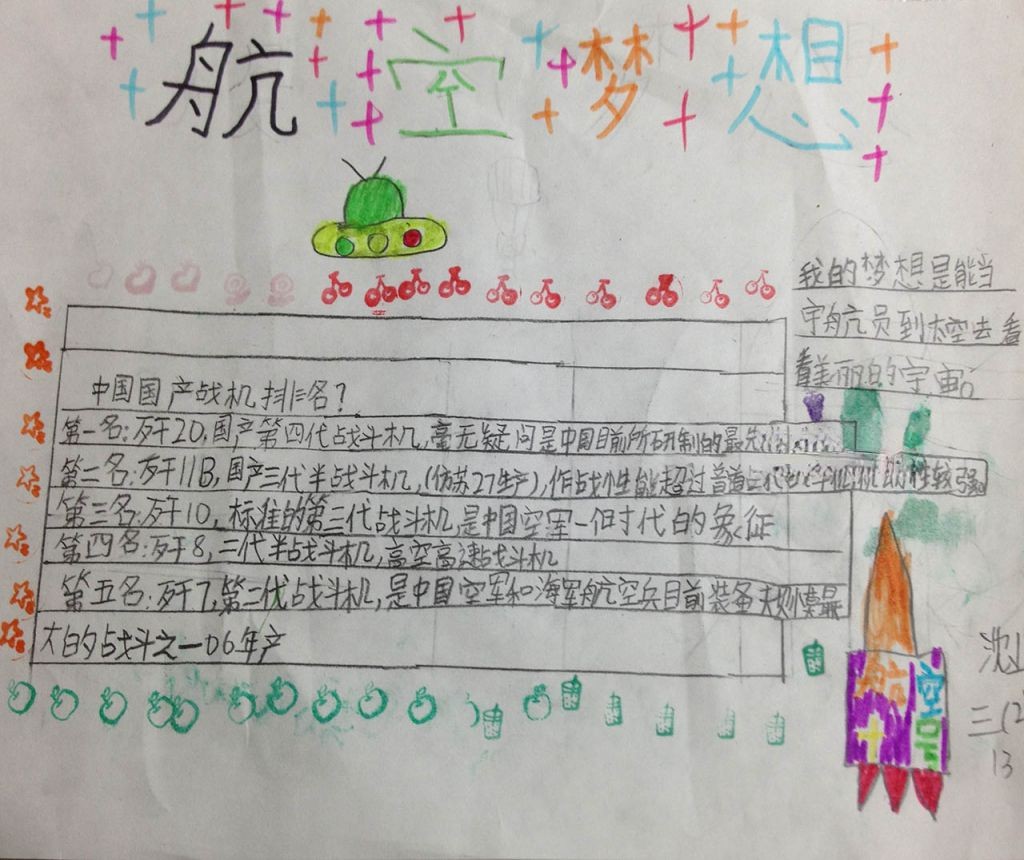 航空梦想
我的梦想是能当
宇航员到太空去看
看美丽的宇宙。
中国国产战机排名?
第一名:歼20,国产第四代战斗机,毫无疑问是中国目前所研制的最先
第二名:歼11B,国产三代半战斗机,(仿苏27生产),作战性能超过普通三代 性较强
第三名:歼10,标准的第三代战斗机,是中国空军一个时代的象征
第四名:歼8,二代半战斗机,高空高速战斗机
第五名:歼7,第二代战斗机,是中国空军和海军航空兵目前装备 规模最
大的战斗之一06年产
航空
十
三(2
13